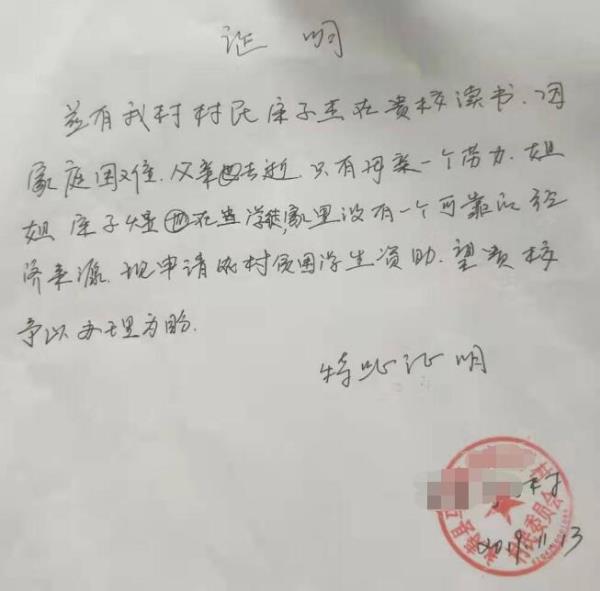 证明
兹有我村村民子杰在贵校读书.因
家庭困难.父亲已去逝.只有母亲一个劳力.姐
姐子也在当学徒,家里没有一个可靠的经
济来源.现申请农村贫困学生资助.望贵校
予以办理为盼.
特此证明
村
村民委员会
2019.11.13